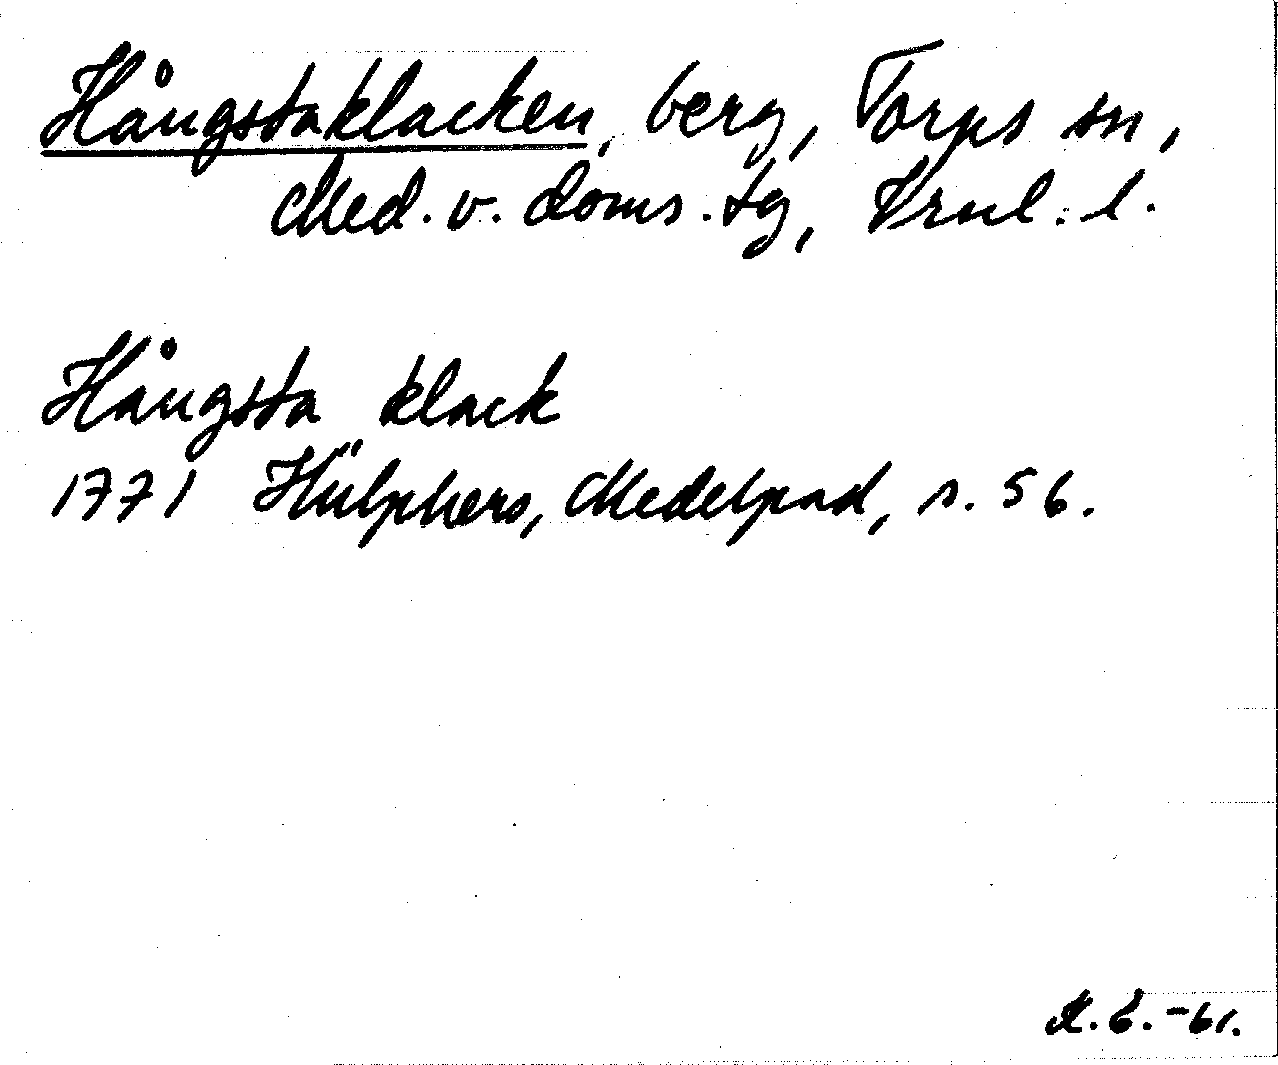 Hångstaklacken, berg, Torps sn,
Med. v. doms. tg, Vrnl. l.
Hångsta klack
1771 Hülphers, Medelpad, s. 56.
K.E.-61.